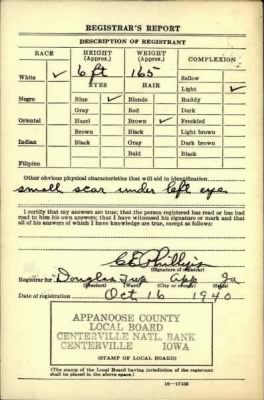 REGISTRAR'S REPORT
DESCRIPTION OF REGISTRANT
RACE HEIGHT (Approx.) WEIGHT (Approx.) COMPLEXION
White ✓ 6 ft 165 Sallow
EYES HAIR Light ✓
Negro Blue ✓ Blonde Ruddy
Gray Red Dark
Oriental Hazel Brown ✓ Freckled
Brown Black Light brown
Indian Black Gray Dark brown
Bald Black
Filipino
Other obvious physical characteristics that will aid in identification
small scar under left eye
I certify that my answers are true; that the person registered has read or has had
read to him his own answers; that I have witnessed his signature or mark and that
all of his answers of which I have knowledge are true, except as follows:
C E Phillips
(Signature of registrar)
Registrar for Douglas Twp App Ia
(Precinct) (Ward) (City or county) (State)
Date of registration Oct 16 1940
APPANOOSE COUNTY
LOCAL BOARD
CENTERVILLE NATL. BANK
CENTERVILLE IOWA
(STAMP OF LOCAL BOARD)
(The stamp of the Local Board having jurisdiction of the registrant
shall be placed in the above space.)